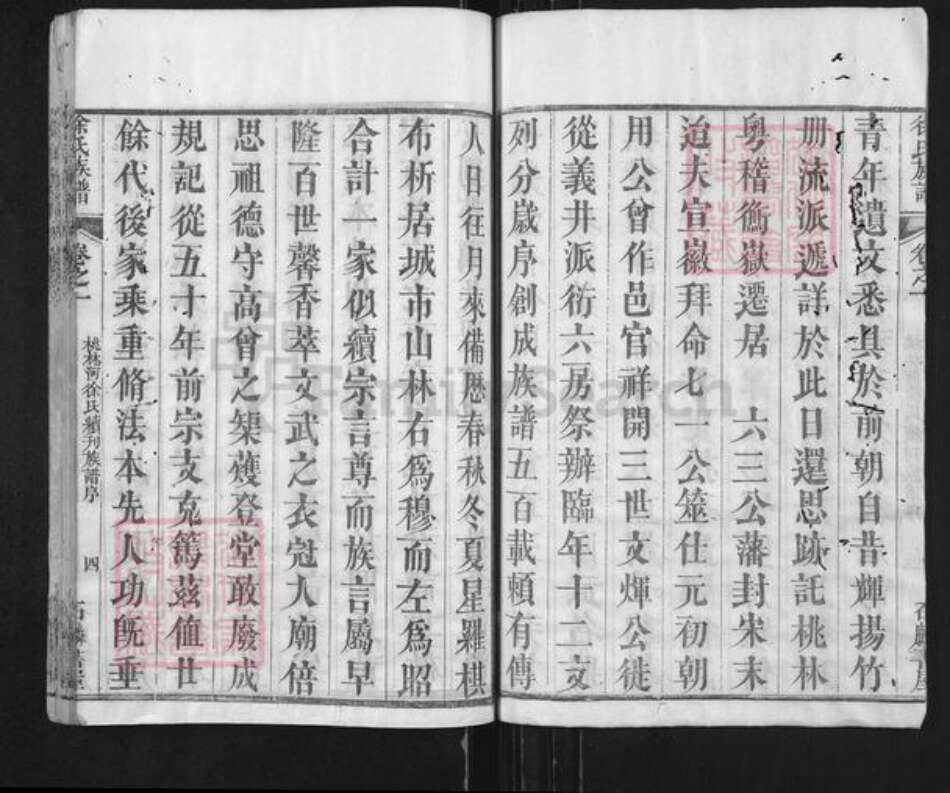 徐氏族譜
卷之一
青年遺文悉具於前朝自昔輝揚竹
册流派遞詳於此日還思跡託桃林
粤稽衡嶽遷居 六三公藩封宋末
追夫宣徽拜命七一公筮仕元初朝
用公曾作邑官祥開三世文煇公徙
從義井派衍六房祭辦臨年十二支
列分歲序創成族譜五百載賴有傳
人日往月來備歷春秋冬夏星羅棋
布析居城市山林右爲穆而左爲昭
合計一家似續宗言尊而族言屬早
隆百世馨香萃文武之衣冠人廟倍
思祖德守高曾之榘蒦登堂敢廢成
規記從五十年前宗支克篤茲値廿
餘代後家乘重脩法本先人功旣垂
徐氏族譜
卷之一
桃林河徐氏續刊族譜序
四
FamilySearch